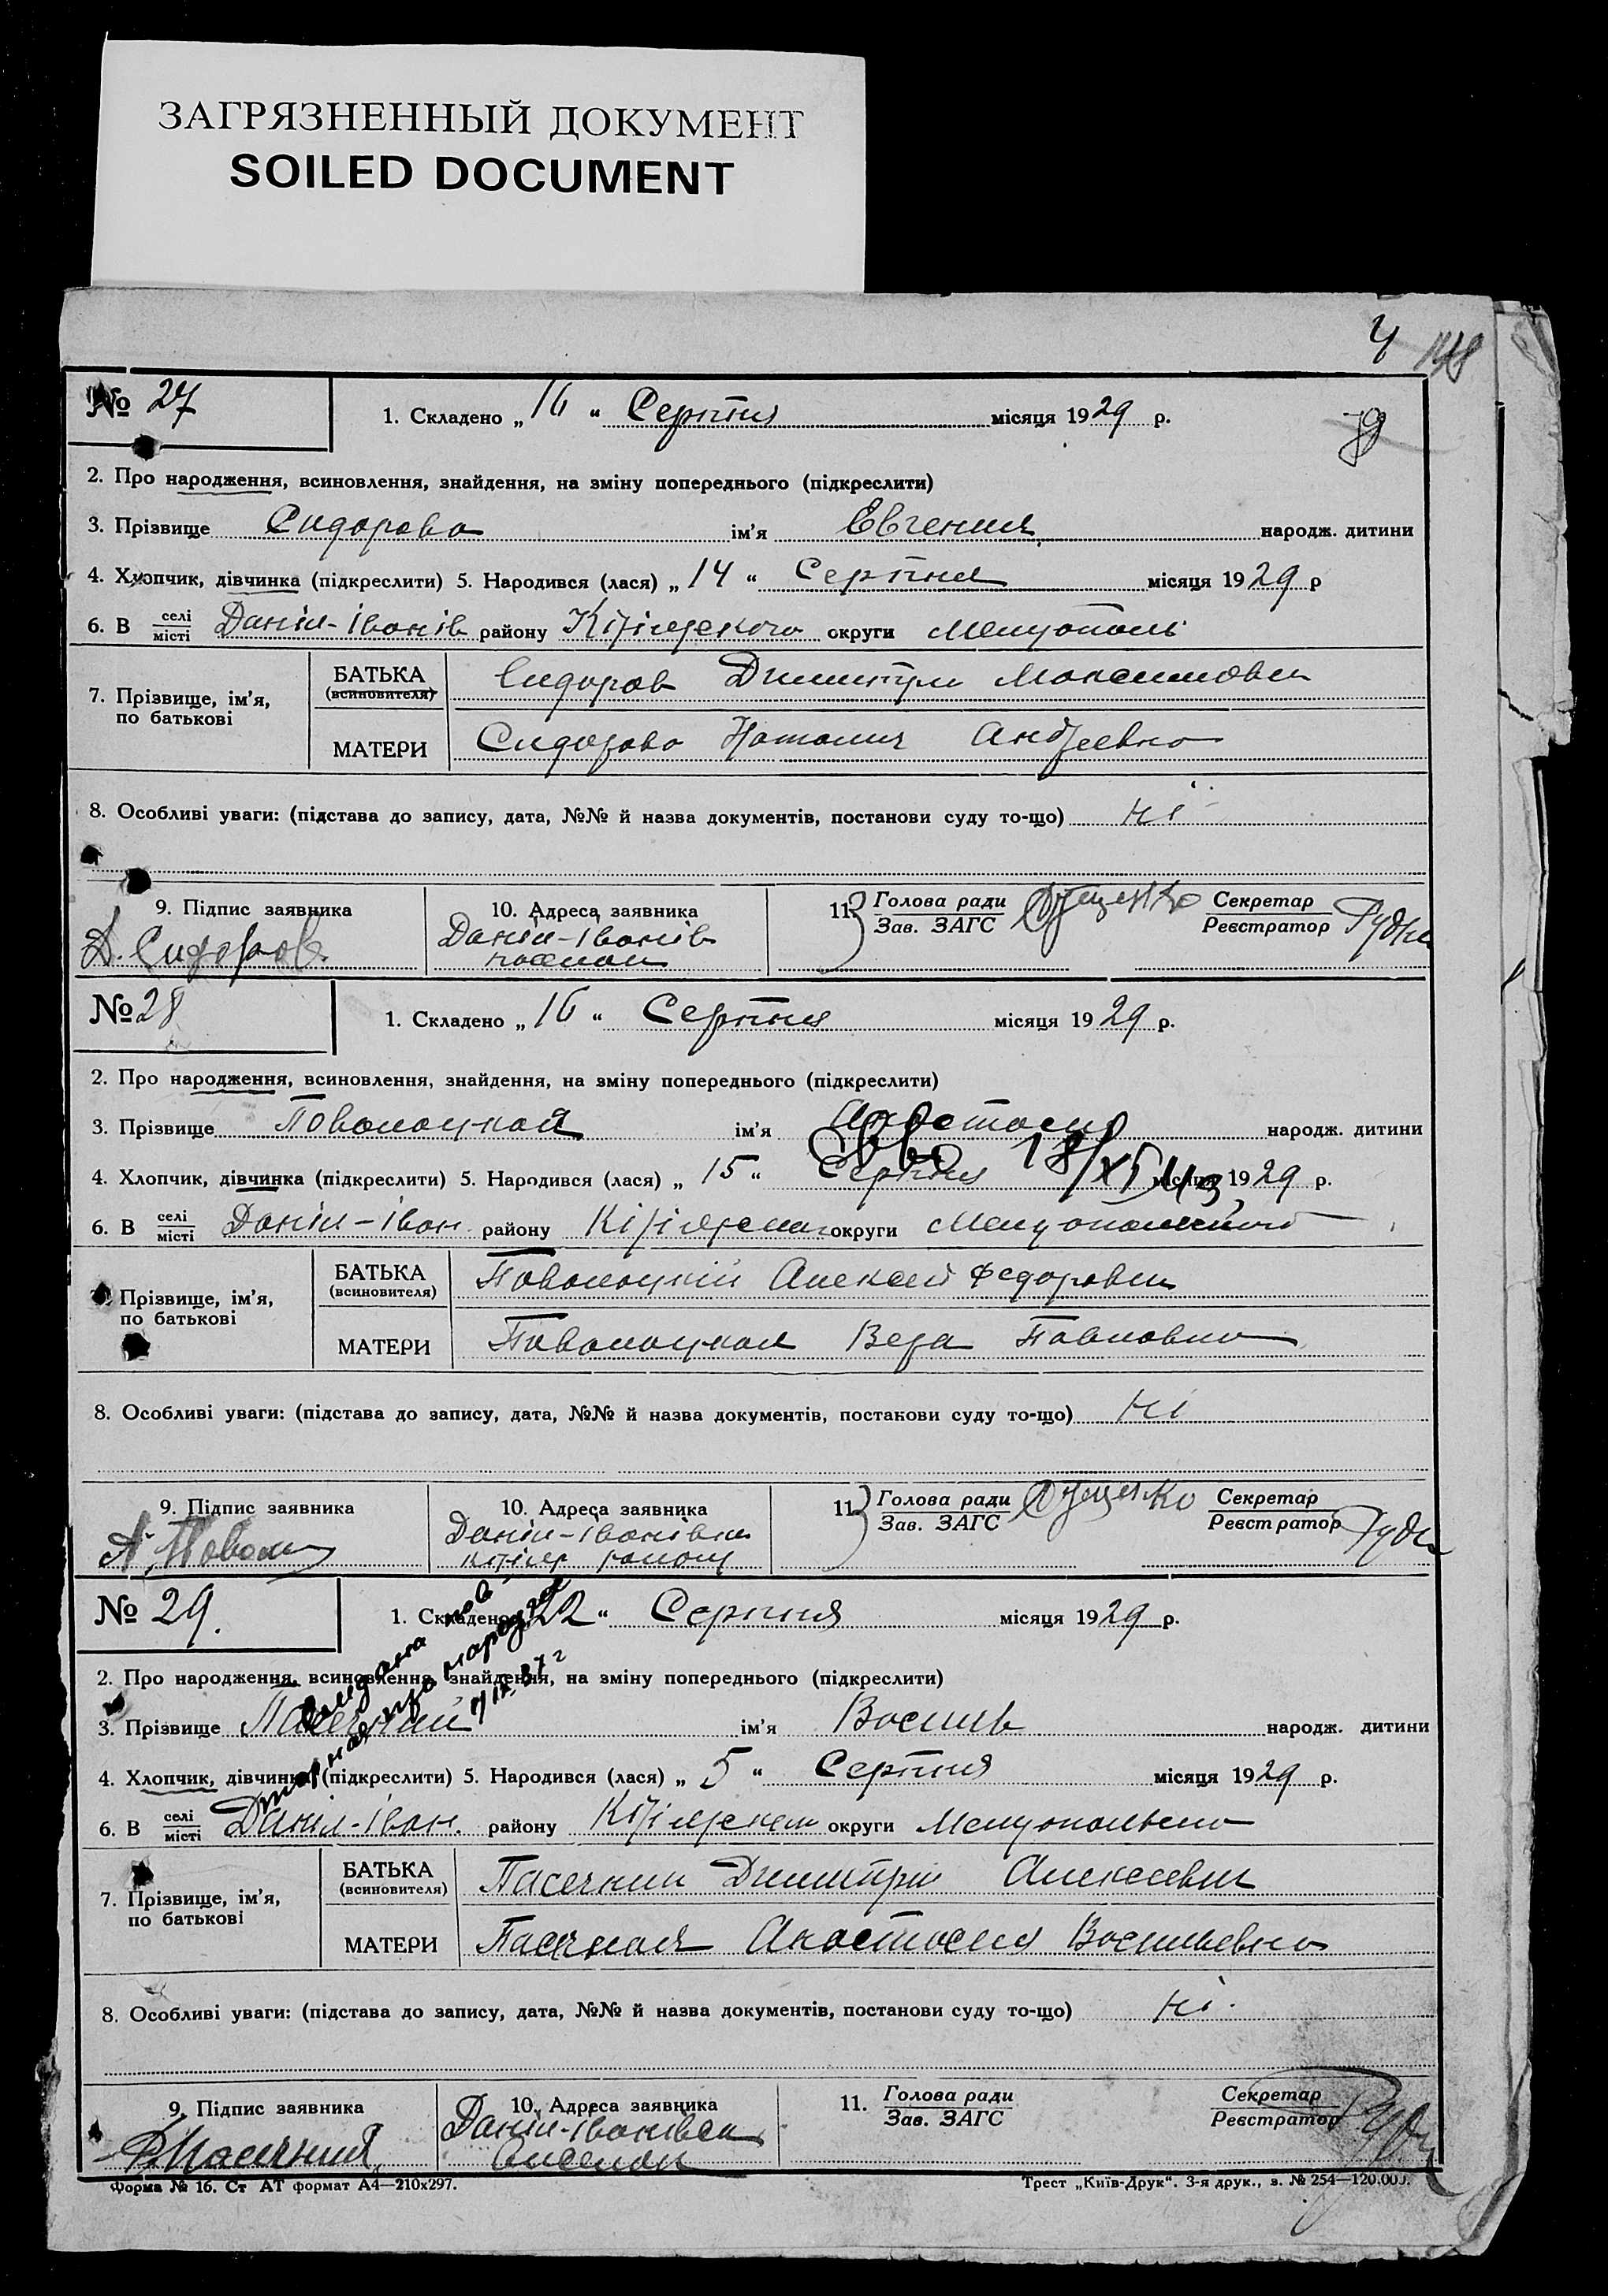 ЗАГРЯЗНЕННЫЙ ДОКУМЕНТ
SOILED DOCUMENT
4
№ 27
1. Складено „ 16 “ Серпня місяця 1929 р.
2. Про народження, всиновлення, знайдення, на зміну попереднього (підкреслити)
3. Прізвище Сидорова ім’я Евгения народж. дитини
4. Хлопчик, дівчинка (підкреслити) 5. Народився (лася) „ 14 “ Серпня місяця 1929 р
6. В селі місті Даніл-Іванів району округи Мелітополь
7. Прізвище, ім’я, по батькові
БАТЬКА (всиновителя) Сидоров Димитри Максимович
МАТЕРИ Сидорова Наталия Андреевна
8. Особливі уваги: (підстава до запису, дата, №№ й назва документів, постанови суду то-що) ні
9. Підпис заявника
Д. Сидоров
10. Адреса заявника
Даніл-Іванів
11. Голова ради
Зав. ЗАГС
Секретар
Реєстратор
№ 28
1. Складено „ 16 “ Серпня місяця 1929 р.
2. Про народження, всиновлення, знайдення, на зміну попереднього (підкреслити)
3. Прізвище Поволоцкая ім’я Анастасия народж. дитини
4. Хлопчик, дівчинка (підкреслити) 5. Народився (лася) „ 15 “ Серпня місяця 1929 р.
6. В селі місті Даніл-Іван району округи
Прізвище, ім’я, по батькові
БАТЬКА (всиновителя) Поволоцкий Алексей Федорович
МАТЕРИ Поволоцкая Вера Павловна
8. Особливі уваги: (підстава до запису, дата, №№ й назва документів, постанови суду то-що) ні
9. Підпис заявника
10. Адреса заявника
Даніл-Іванівка
району
11. Голова ради
Зав. ЗАГС
Секретар
Реєстратор
№ 29.
1. Складено „ 22 “ Серпня місяця 1929 р.
2. Про народження, всиновлення, знайдення, на зміну попереднього (підкреслити)
3. Прізвище Пасечний ім’я Василь народж. дитини
4. Хлопчик, дівчинка (підкреслити) 5. Народився (лася) „ 5 “ Серпня місяця 1929 р.
6. В селі місті Даніл-Іван. району округи
7. Прізвище, ім’я, по батькові
БАТЬКА (всиновителя) Пасечний Димитрий Алексеевич
МАТЕРИ Пасечная Анастасия Васильевна
8. Особливі уваги: (підстава до запису, дата, №№ й назва документів, постанови суду то-що) ні
9. Підпис заявника
10. Адреса заявника
11. Голова ради
Зав. ЗАГС
Секретар
Реєстратор
Форма № 16. Ст АТ формат А4—210x297.
Трест „Київ-Друк“. 3-я друк., з. № 254—120.000.